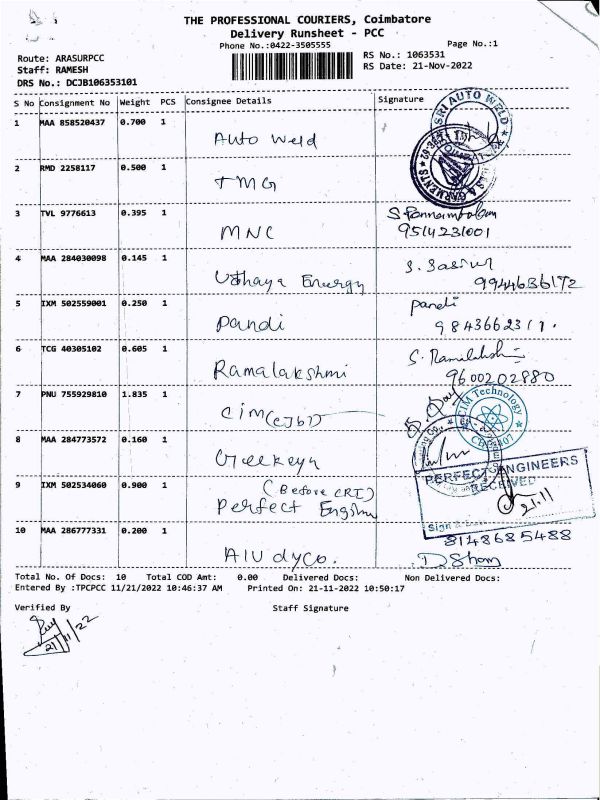 THE PROFESSIONAL COURIERS, Coimbatore
Delivery Runsheet - PCC
Phone No.:0422-3505555
Page No.:1
Route: ARASURPCC
Staff: RAMESH
DRS No.: DCJB106353101
RS No.: 1063531
RS Date: 21-Nov-2022
S No Consignment No Weight PCS Consignee Details Signature
1 MAA 858520437 0.700 1 Auto Weld SRI AUTO WELD
2 RMD 2258117 0.500 1 TMG
3 TVL 9776613 0.395 1 MNC
9514231001
4 MAA 284030098 0.145 1 Uthaya Energy
9944636172
5 IXM 502559001 0.250 1 Pandi pandi
9843662311.
6 TCG 40305102 0.605 1 Ramalakshmi
9600202980
7 PNU 755929810 1.835 1 CIM (CJB7) CIM Technology
8 MAA 284773572 0.160 1
9 IXM 502534060 0.900 1 (Before CRI)
Perfect PERFECT ENGINEERS
RECEIVED
21.11
Sign &
8148685488
10 MAA 286777331 0.200 1 D Sham
Total No. Of Docs: 10 Total COD Amt: 0.00 Delivered Docs: Non Delivered Docs:
Entered By :TPCPCC 11/21/2022 10:46:37 AM Printed On: 21-11-2022 10:50:17
Verified By Staff Signature
21/11/22